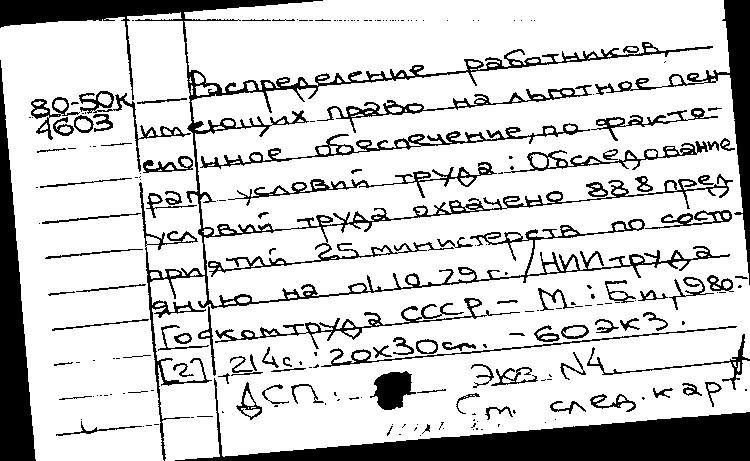 80-50к
4603
Распределение работников,
имеющих право на льготное пен-
сионное обеспечение, по факто-
рам условий труда: Обследование
условий труда охвачено 888 пред-
приятий 25 министерств по состо-
янию на 01.10.79 г. / НИИ труда
Госкомтруда СССР. – М.: Б.и., 1980.–
[2], 214 с.: 20х30 см. – 60 экз.
ДСП. Экз. N4.
См. след. карт.